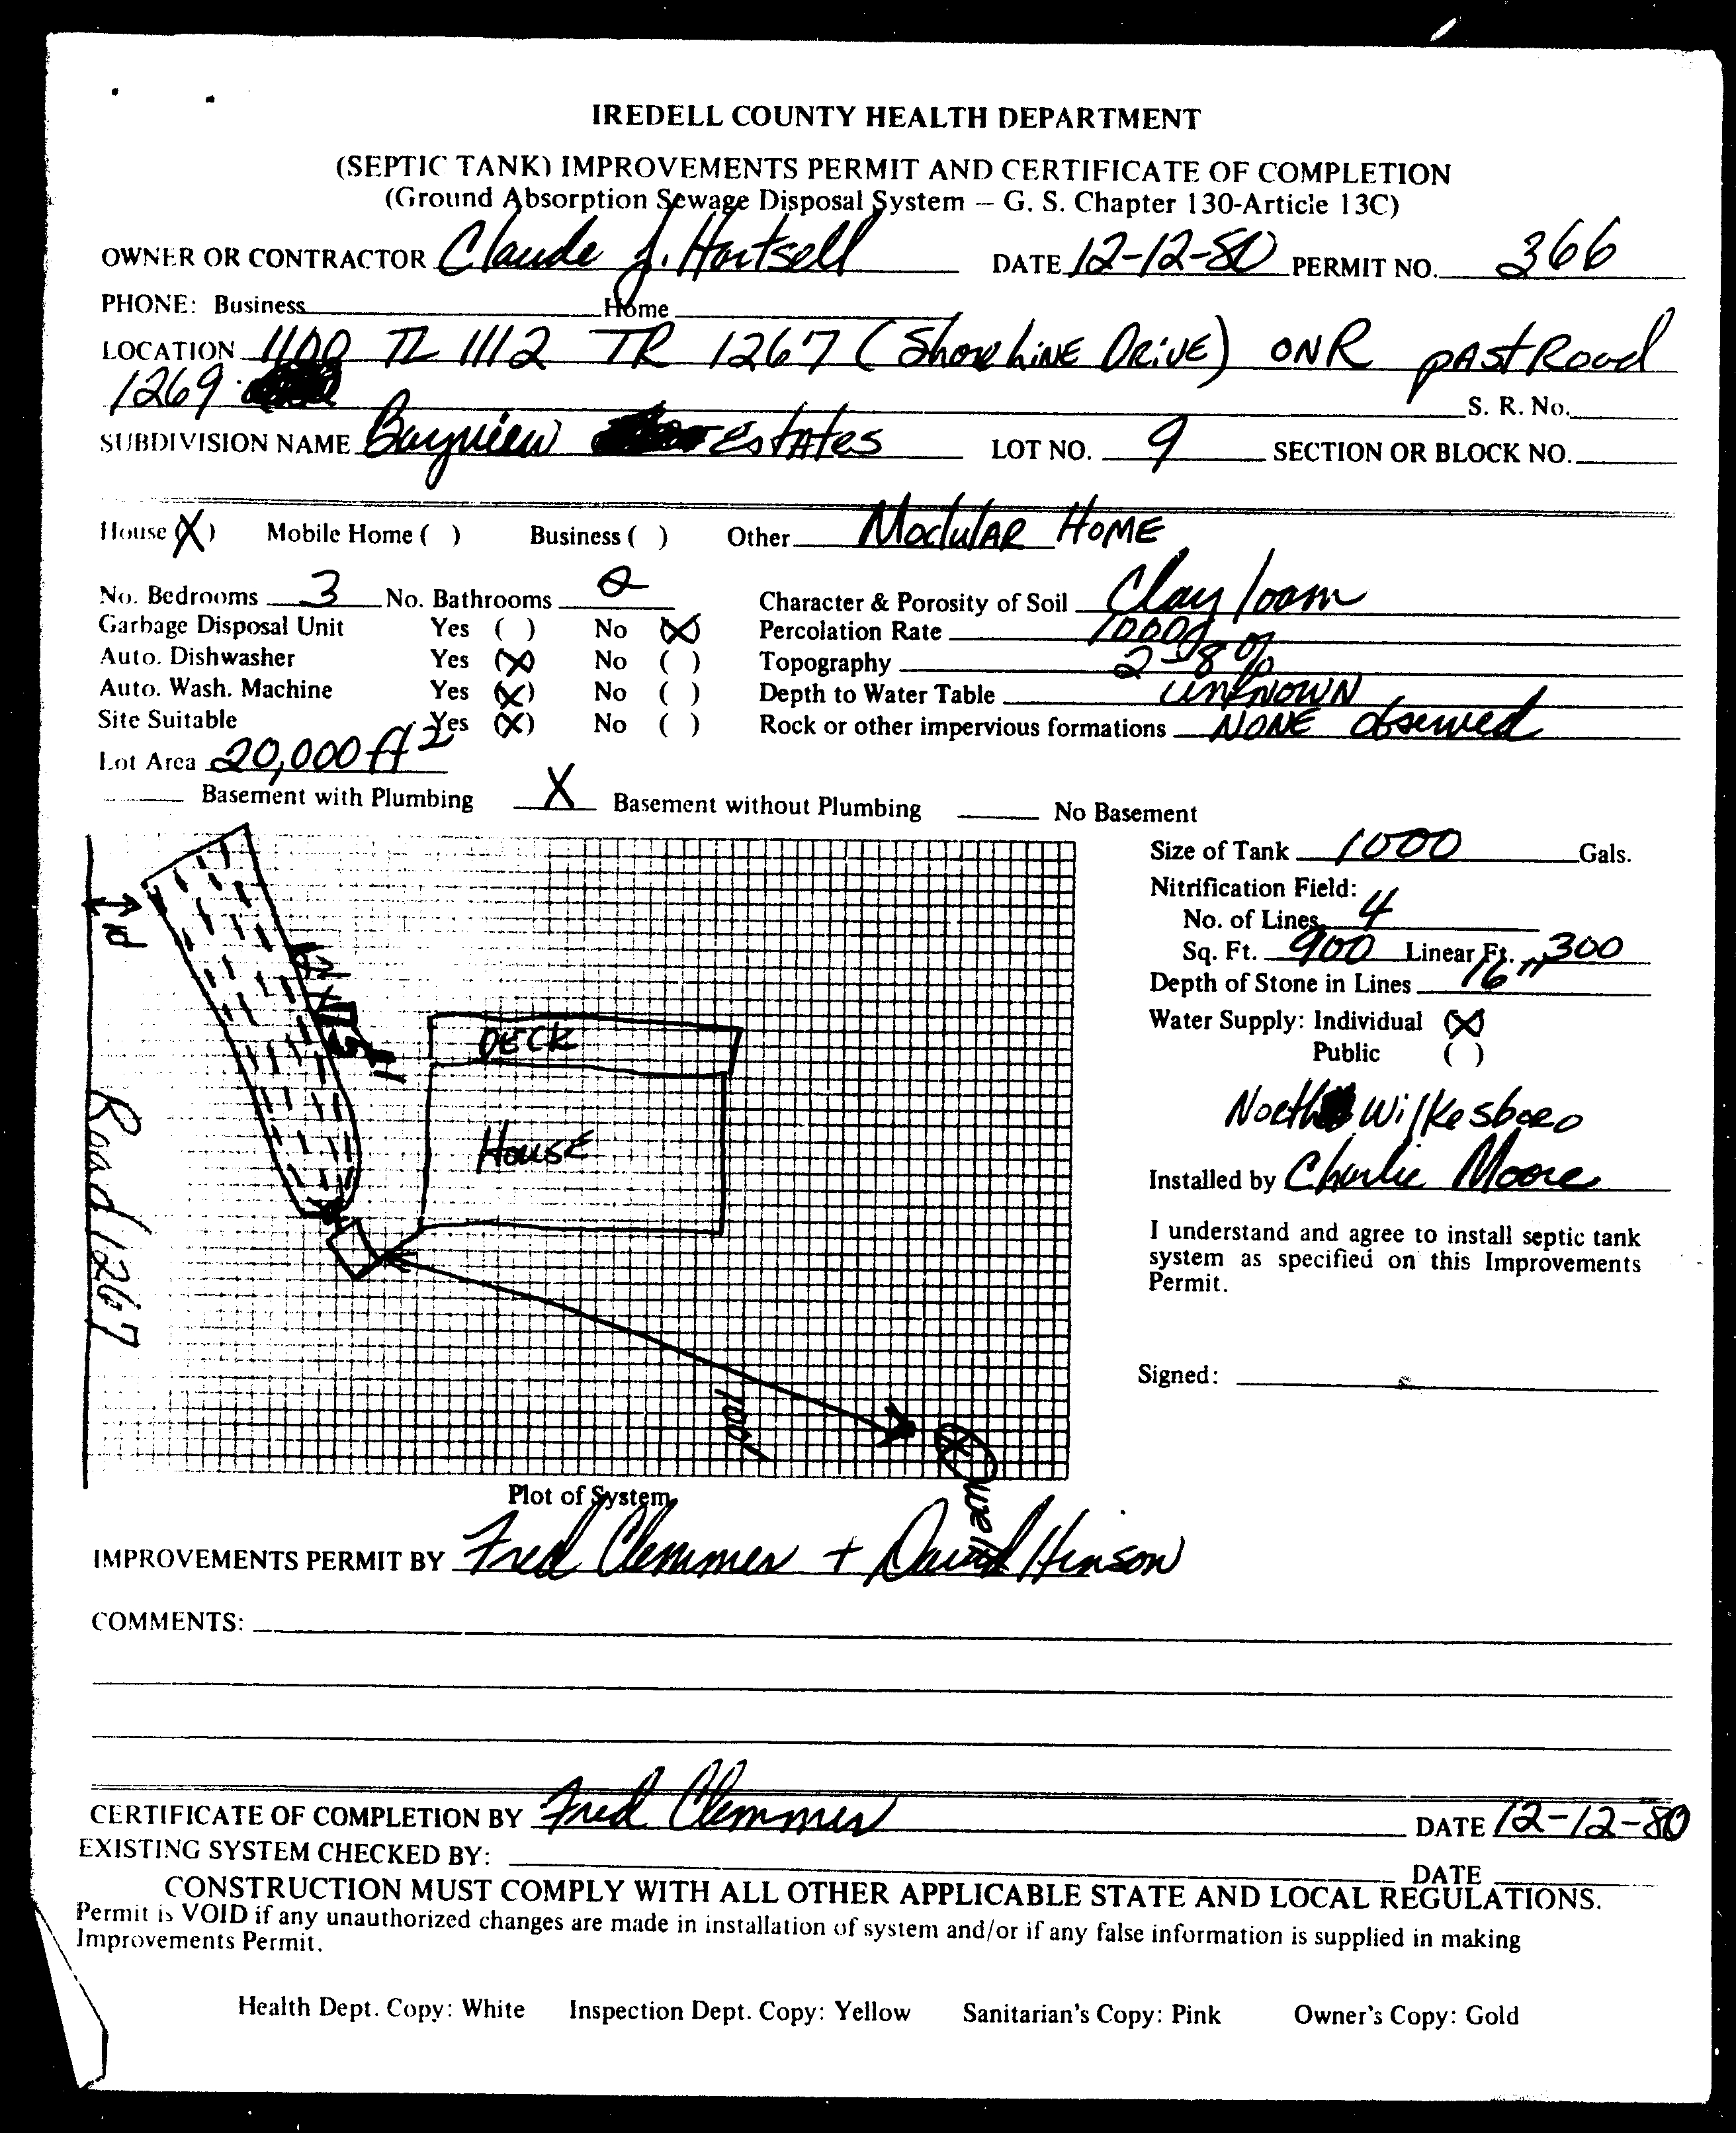 IREDELL COUNTY HEALTH DEPARTMENT
(SEPTIC TANK) IMPROVEMENTS PERMIT AND CERTIFICATE OF COMPLETION
(Ground Absorption Sewage Disposal System – G. S. Chapter 130-Article 13C)
OWNER OR CONTRACTOR Claude J. Hartsell DATE 12-12-80 PERMIT NO. 366
PHONE: Business Home
LOCATION 1100 TL 1112 TR 1267 (ShoreLiNE DRiVE) ON R pAst Road
1269 S. R. No.
SUBDIVISION NAME Bayview EstAtes LOT NO. 9 SECTION OR BLOCK NO.
House (X) Mobile Home ( ) Business ( ) Other ModulAR HOME
No. Bedrooms 3 No. Bathrooms 2 Character & Porosity of Soil Clay loam
Garbage Disposal Unit Yes ( ) No (X) Percolation Rate
Auto. Dishwasher Yes (X) No ( ) Topography 2-8%
Auto. Wash. Machine Yes (X) No ( ) Depth to Water Table unkNOWN
Site Suitable Yes (X) No ( ) Rock or other impervious formations NONE observed
Lot Area 20,000 ft2
Basement with Plumbing X Basement without Plumbing No Basement
Size of Tank 1000 Gals.
Nitrification Field:
No. of Lines 4
Sq. Ft. 900 Linear Ft. 300
Depth of Stone in Lines 16"
Water Supply: Individual (X)
Public ( )
North Wilkesboro
Installed by Charlie Moore
I understand and agree to install septic tank
system as specified on this Improvements
Permit.
Signed:
DECK
HousE
Road 1267
100'
well
Plot of System
IMPROVEMENTS PERMIT BY Fred Clemmer + David Hinson
COMMENTS:
CERTIFICATE OF COMPLETION BY Fred Clemmer DATE 12-12-80
EXISTING SYSTEM CHECKED BY: DATE
CONSTRUCTION MUST COMPLY WITH ALL OTHER APPLICABLE STATE AND LOCAL REGULATIONS.
Permit is VOID if any unauthorized changes are made in installation of system and/or if any false information is supplied in making
Improvements Permit.
Health Dept. Copy: White Inspection Dept. Copy: Yellow Sanitarian's Copy: Pink Owner's Copy: Gold